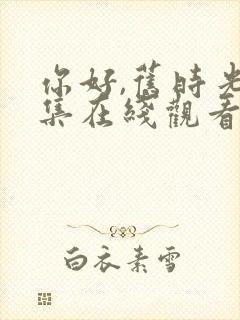 你好,舊時光
集在綫觀看
白衣素雪